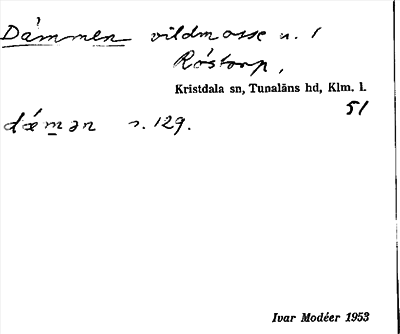 Dämmen vildmosse n. 1
Röstorp,
Kristdala sn, Tunaläns hd, Klm. l.
51
dǽmən s. 129.
Ivar Modéer 1953